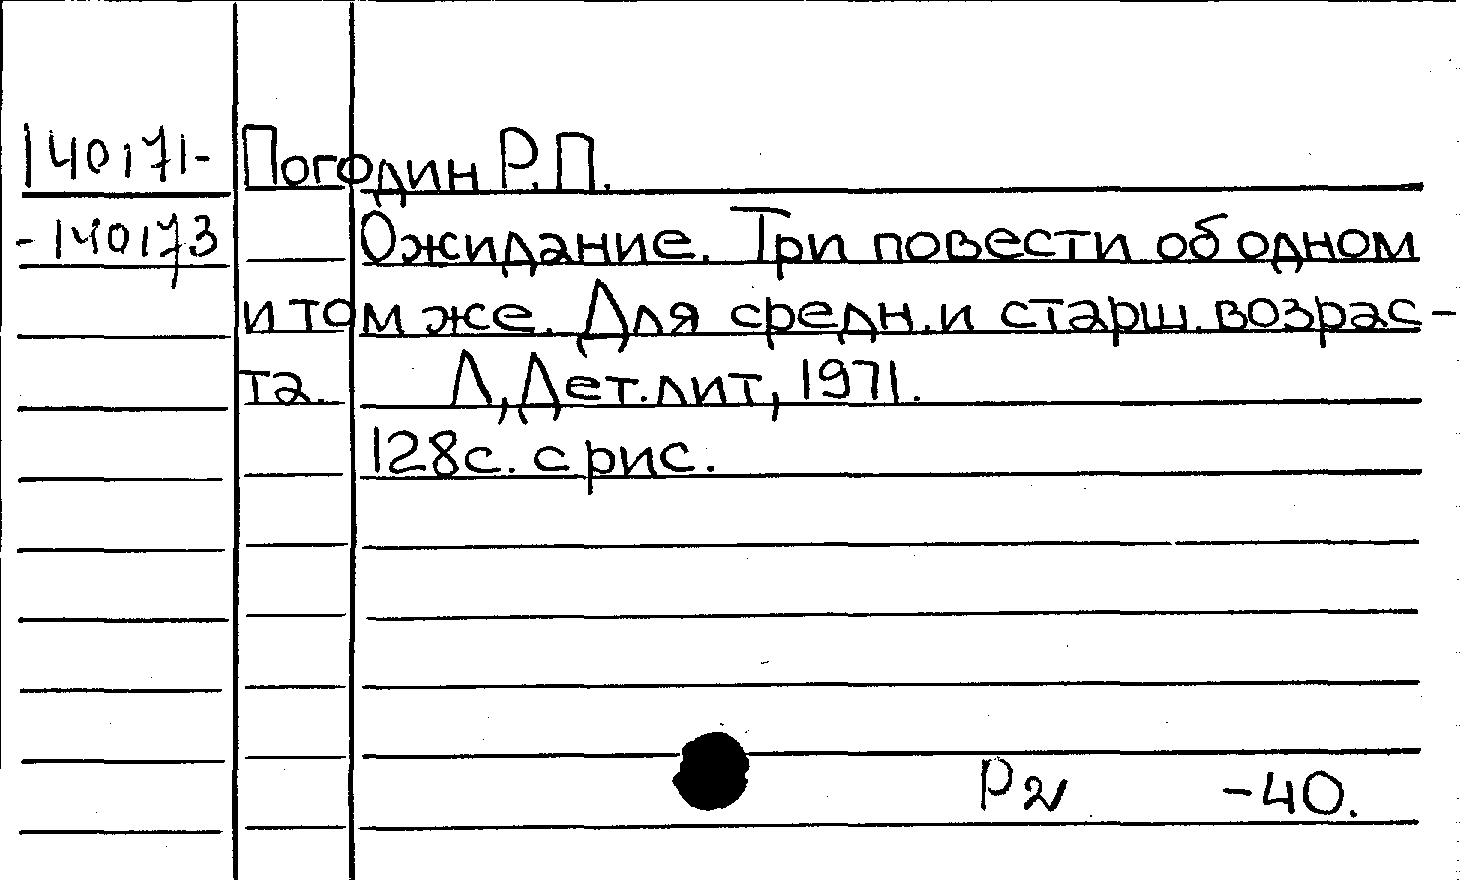 140171- Погодин Р.П.
-140173 Ожидание. Три повести об одном
и том же. Для средн. и старш. возрас-
та. Л, Дет. лит, 1971.
128 с. с рис.
Р2 -40.